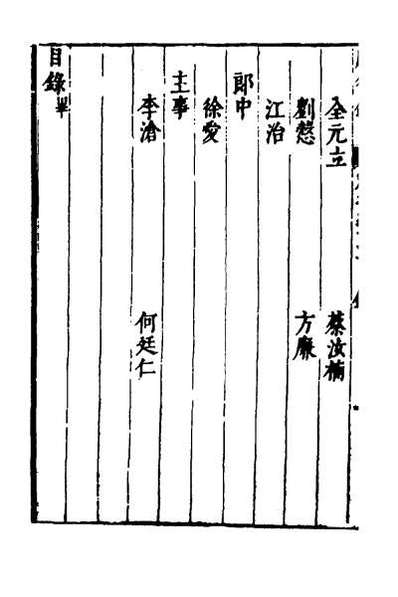 全元立 蔡汝楠
劉慤 方廉
江治
郎中
徐愛
主事
李滄 何廷仁
目錄畢